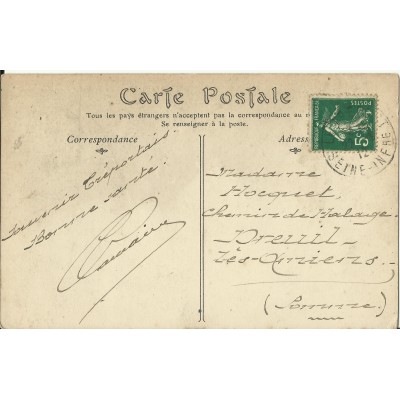 Carte Postale
Tous les pays étrangers n'acceptent pas la correspondance au
Se renseigner à la poste.
Correspondance
Adres
POSTES
5c
SEINE-INFRE
Souvenir Tréportais.
Bonne santé.
Madame
Hocquet,
Chemin de Halage.
Dreuil-
lès-Amiens.-
(Somme.)